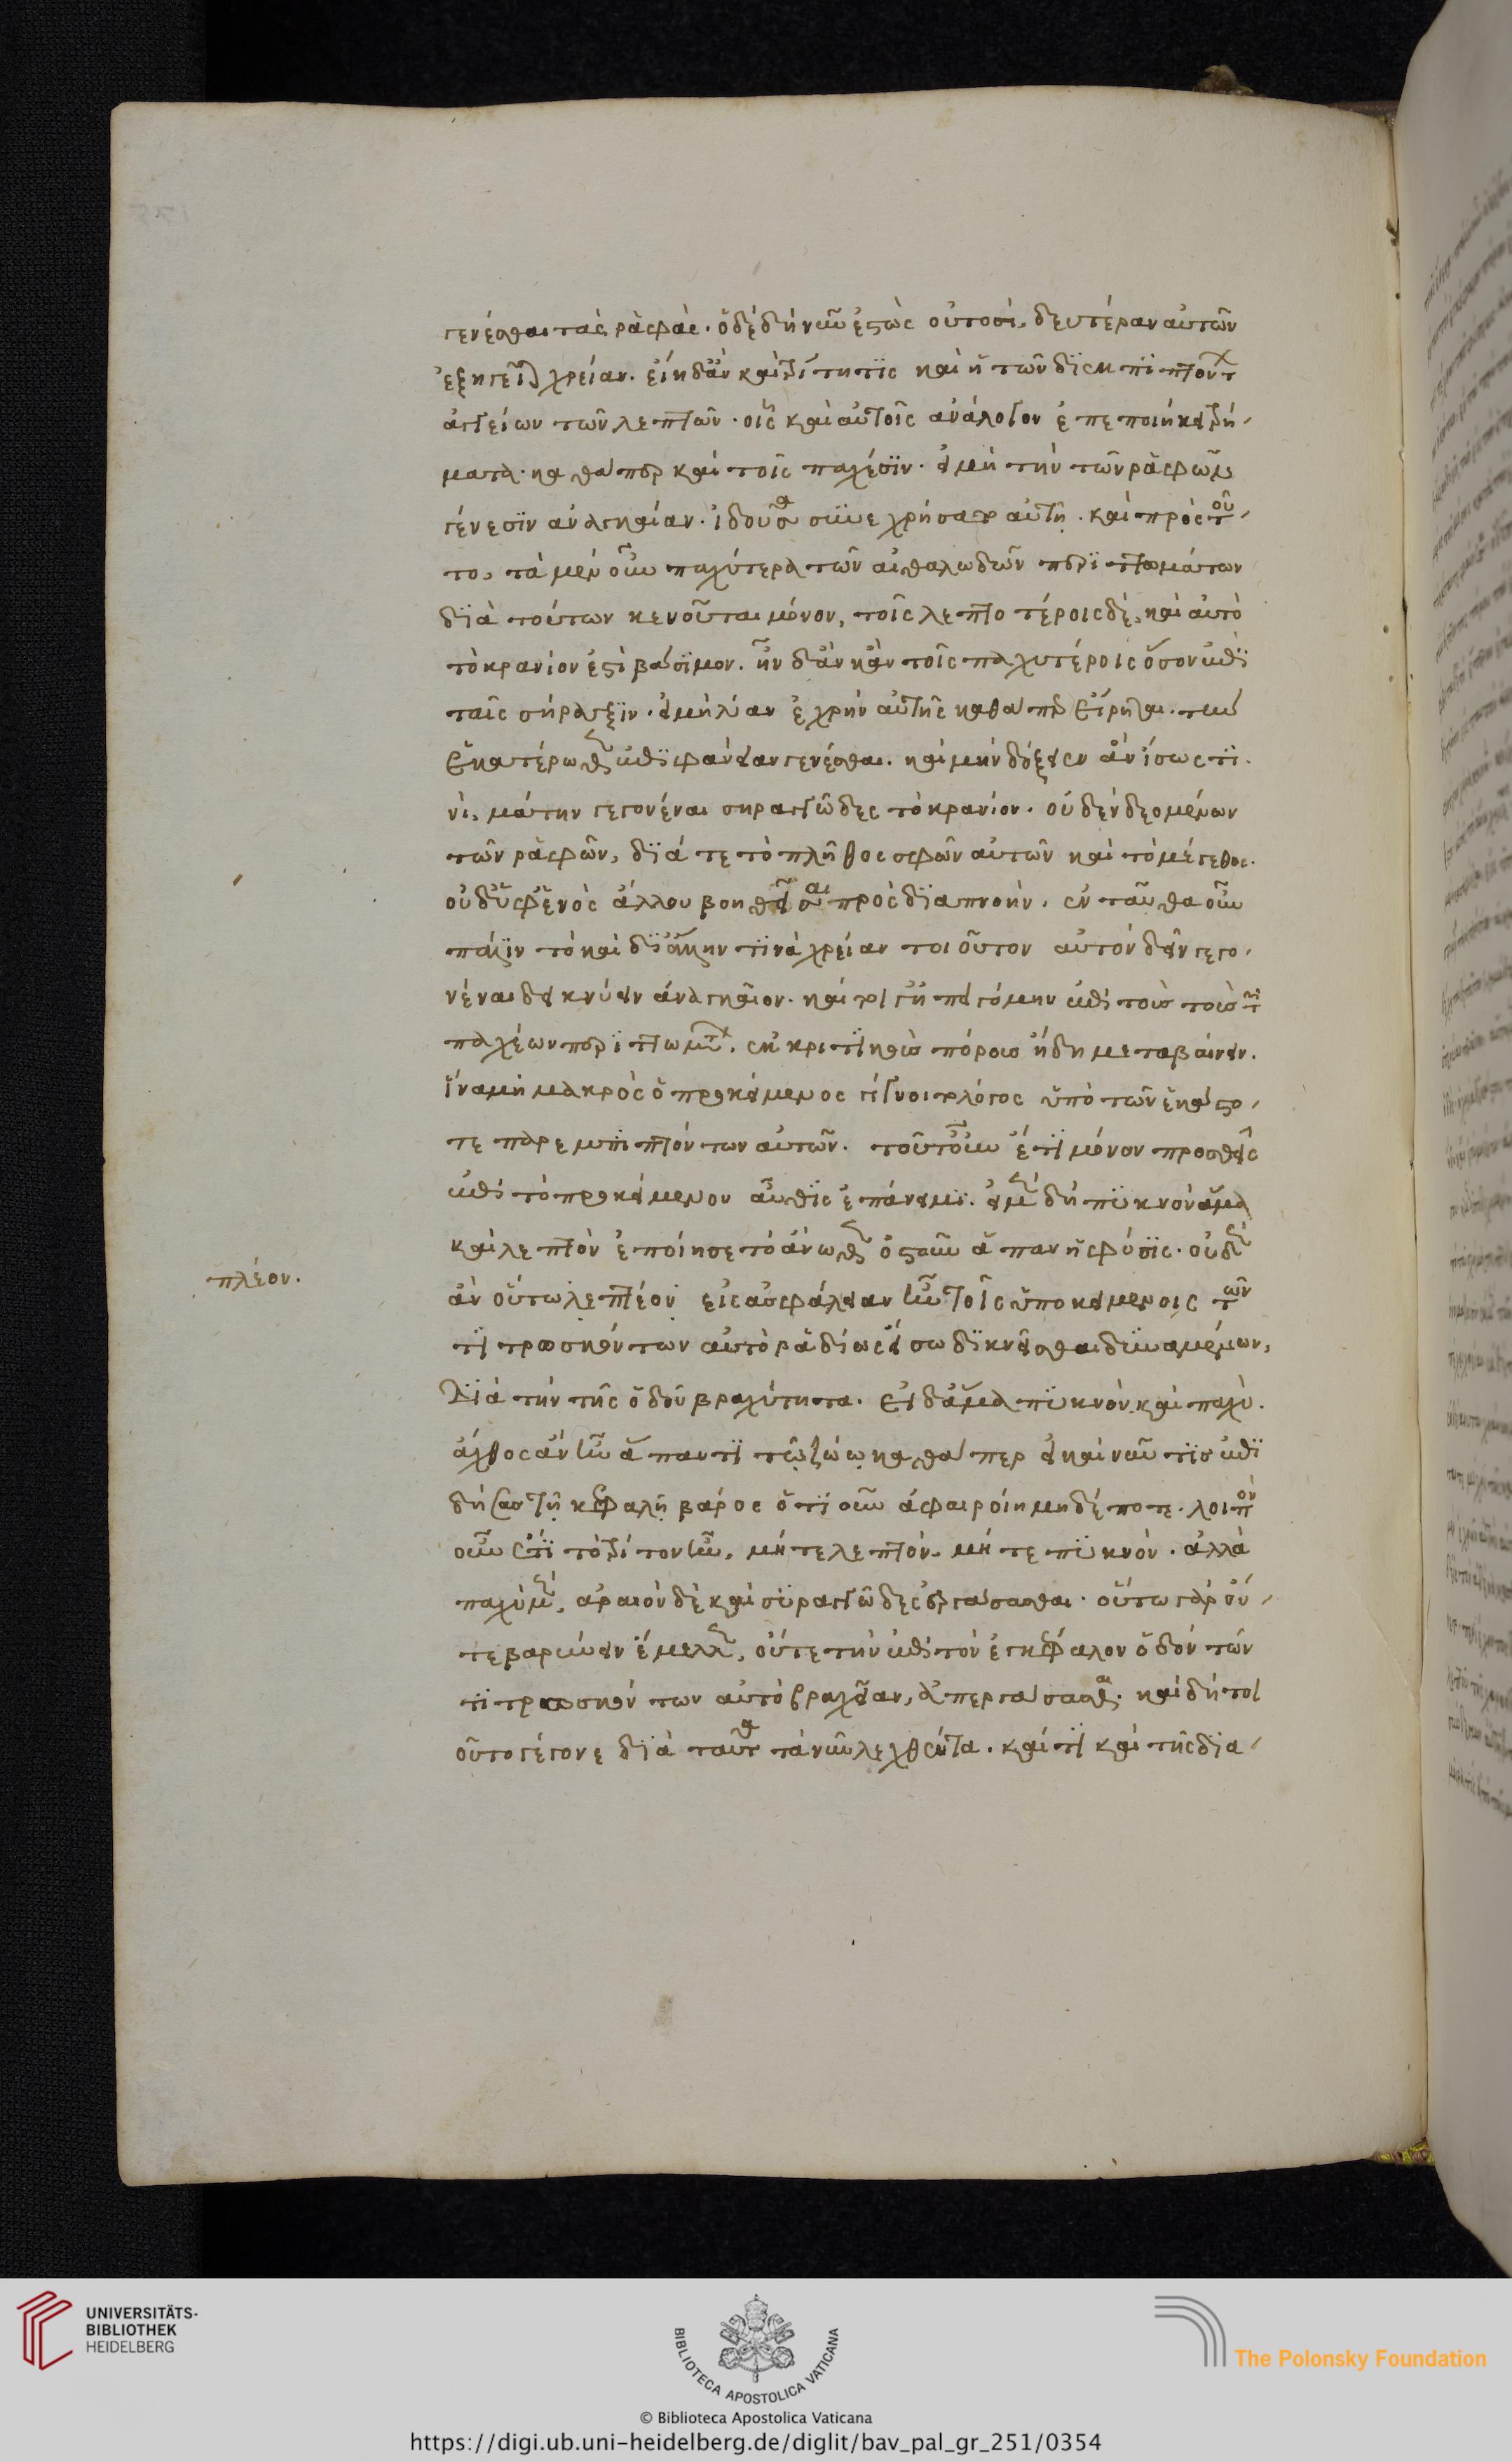 γενέσθαι τὰς ῥαφάς. ὁ δὲ δὴ νῦν ἑστὼς οὑτοσὶ, δευτέραν αὐτῶν
ἐξηγεῖται χρείαν. εἴη δ' ἂν καὶ τρίτη τις καὶ ἡ τῶν διεκπιπτόντων
ἀγγείων τῶν λεπτῶν. οἷς καὶ αὐτοῖς ἀνάλογον ἐπεποιήκει τρή-
ματα. καθάπερ καὶ τοῖς παχέσιν. εἰ μὴ τὴν τῶν ῥαφῶν
γένεσιν ἀναγκαίαν. ἰδοῦσα συνεχρήσατο αὐτῇ. καὶ πρὸς τοῦ-
το, τὰ μὲν οὖν παχύτερα τῶν αἰθαλωδῶν περιττωμάτων
διὰ τούτων κενοῦται μόνον, τοῖς λεπτοτέροις δὲ, καὶ αὐτὸ
τὸ κρανίον ἐστὶ βάσιμον. ἦν δ' ἂν κἂν τοῖς παχυτέροις ὅσον ἐπὶ
ταῖς σήραγξιν. εἰ μὴ λίαν ἐχρῆν αὐτῆς καθάπερ εἴρηται. τὴν
ἑκατέρωθεν ἐπιφάνειαν γενέσθαι. καὶ μὴν δόξειεν ἂν ἴσως τι-
νὶ, μάτην γεγονέναι σηραγγῶδες τὸ κρανίον. οὐδὲν δεομένων
τῶν ῥαφῶν, διά τε τὸ πλῆθος σφῶν αὐτῶν καὶ τὸ μέγεθος.
οὐδ' ὑφ' ἑνὸς ἄλλου βοηθεῖσθαι πρὸς διαπνοήν. ἐνταῦθα οὖν
πάλιν τὸ καὶ δι' ἄλλην τινὰ χρείαν τοιοῦτον αὐτὸν δεῖν γεγο-
νέναι δεικνύειν ἀναγκαῖον. καί τοι γ' ἠπειγόμην ἐπὶ τοὺς τοὺς τῶν
παχέων περιττωμάτων, ἐκκριτικοὺς πόρους ἤδη μεταβαίνειν.
ἵνα μὴ μακρὸς ὁ προκείμενος γίγνοιτο λόγος ὑπὸ τῶν ἑκάστο-
τε παρεμπιπτόντων αὐτῶν. τοῦτ' οὖν ἔτι μόνον προσθεὶς
ἐπὶ τὸ προκείμενον αὖθις ἐπάνειμι. εἰ μὲν δὴ πυκνὸν ἅμα
καὶ λεπτὸν ἐποίησε τὸ ἄνωθεν ὀστοῦν ἅπαν ἡ φύσις. οὐδὲν
πλέον.
ἂν οὕτω λεπτέον εἰς ἀσφάλειαν ἦν τοῖς ὑποκειμένοις τῶν
τιτρωσκόντων αὐτὸ ῥᾳδίως εἴσω διικνεῖσθαι δυναμένων,
διὰ τὴν τῆς ὁδοῦ βραχύτητα. εἰ δ' ἅμα πυκνὸν καὶ παχὺ.
ἄχθος ἂν ἦν ἅπαντι τῷ ζώῳ καθάπερ εἰ καὶ νῦν τις ἐπι
δήσας τῇ κεφαλῇ βάρος ὅτι οὖν ἀφαιροίη μηδέποτε. λοιπὸν
οὖν ἔτι τὸ τρίτον ἦν, μήτε λεπτὸν. μήτε πυκνὸν. ἀλλὰ
παχὺ μὲν, ἀραιὸν δὲ καὶ συραγγῶδες ἐργάσασθαι. οὕτω γὰρ οὔ-
τε βαρύνειν ἔμελλεν, οὔτε τὴν ἐπὶ τὸν ἐγκέφαλον ὁδὸν τῶν
τιτρωσκόντων αὐτὸ βραχεῖαν, ἀπεργάσασθαι. καὶ δή τοι
οὕτο γέγονε διὰ ταῦτα τὰ νῦν λεχθέντα. καί τι καὶ τῆς δια-
UNIVERSITÄTS-
BIBLIOTHEK
HEIDELBERG
BIBLIOTECA APOSTOLICA VATICANA
© Biblioteca Apostolica Vaticana
The Polonsky Foundation
https://digi.ub.uni-heidelberg.de/diglit/bav_pal_gr_251/0354